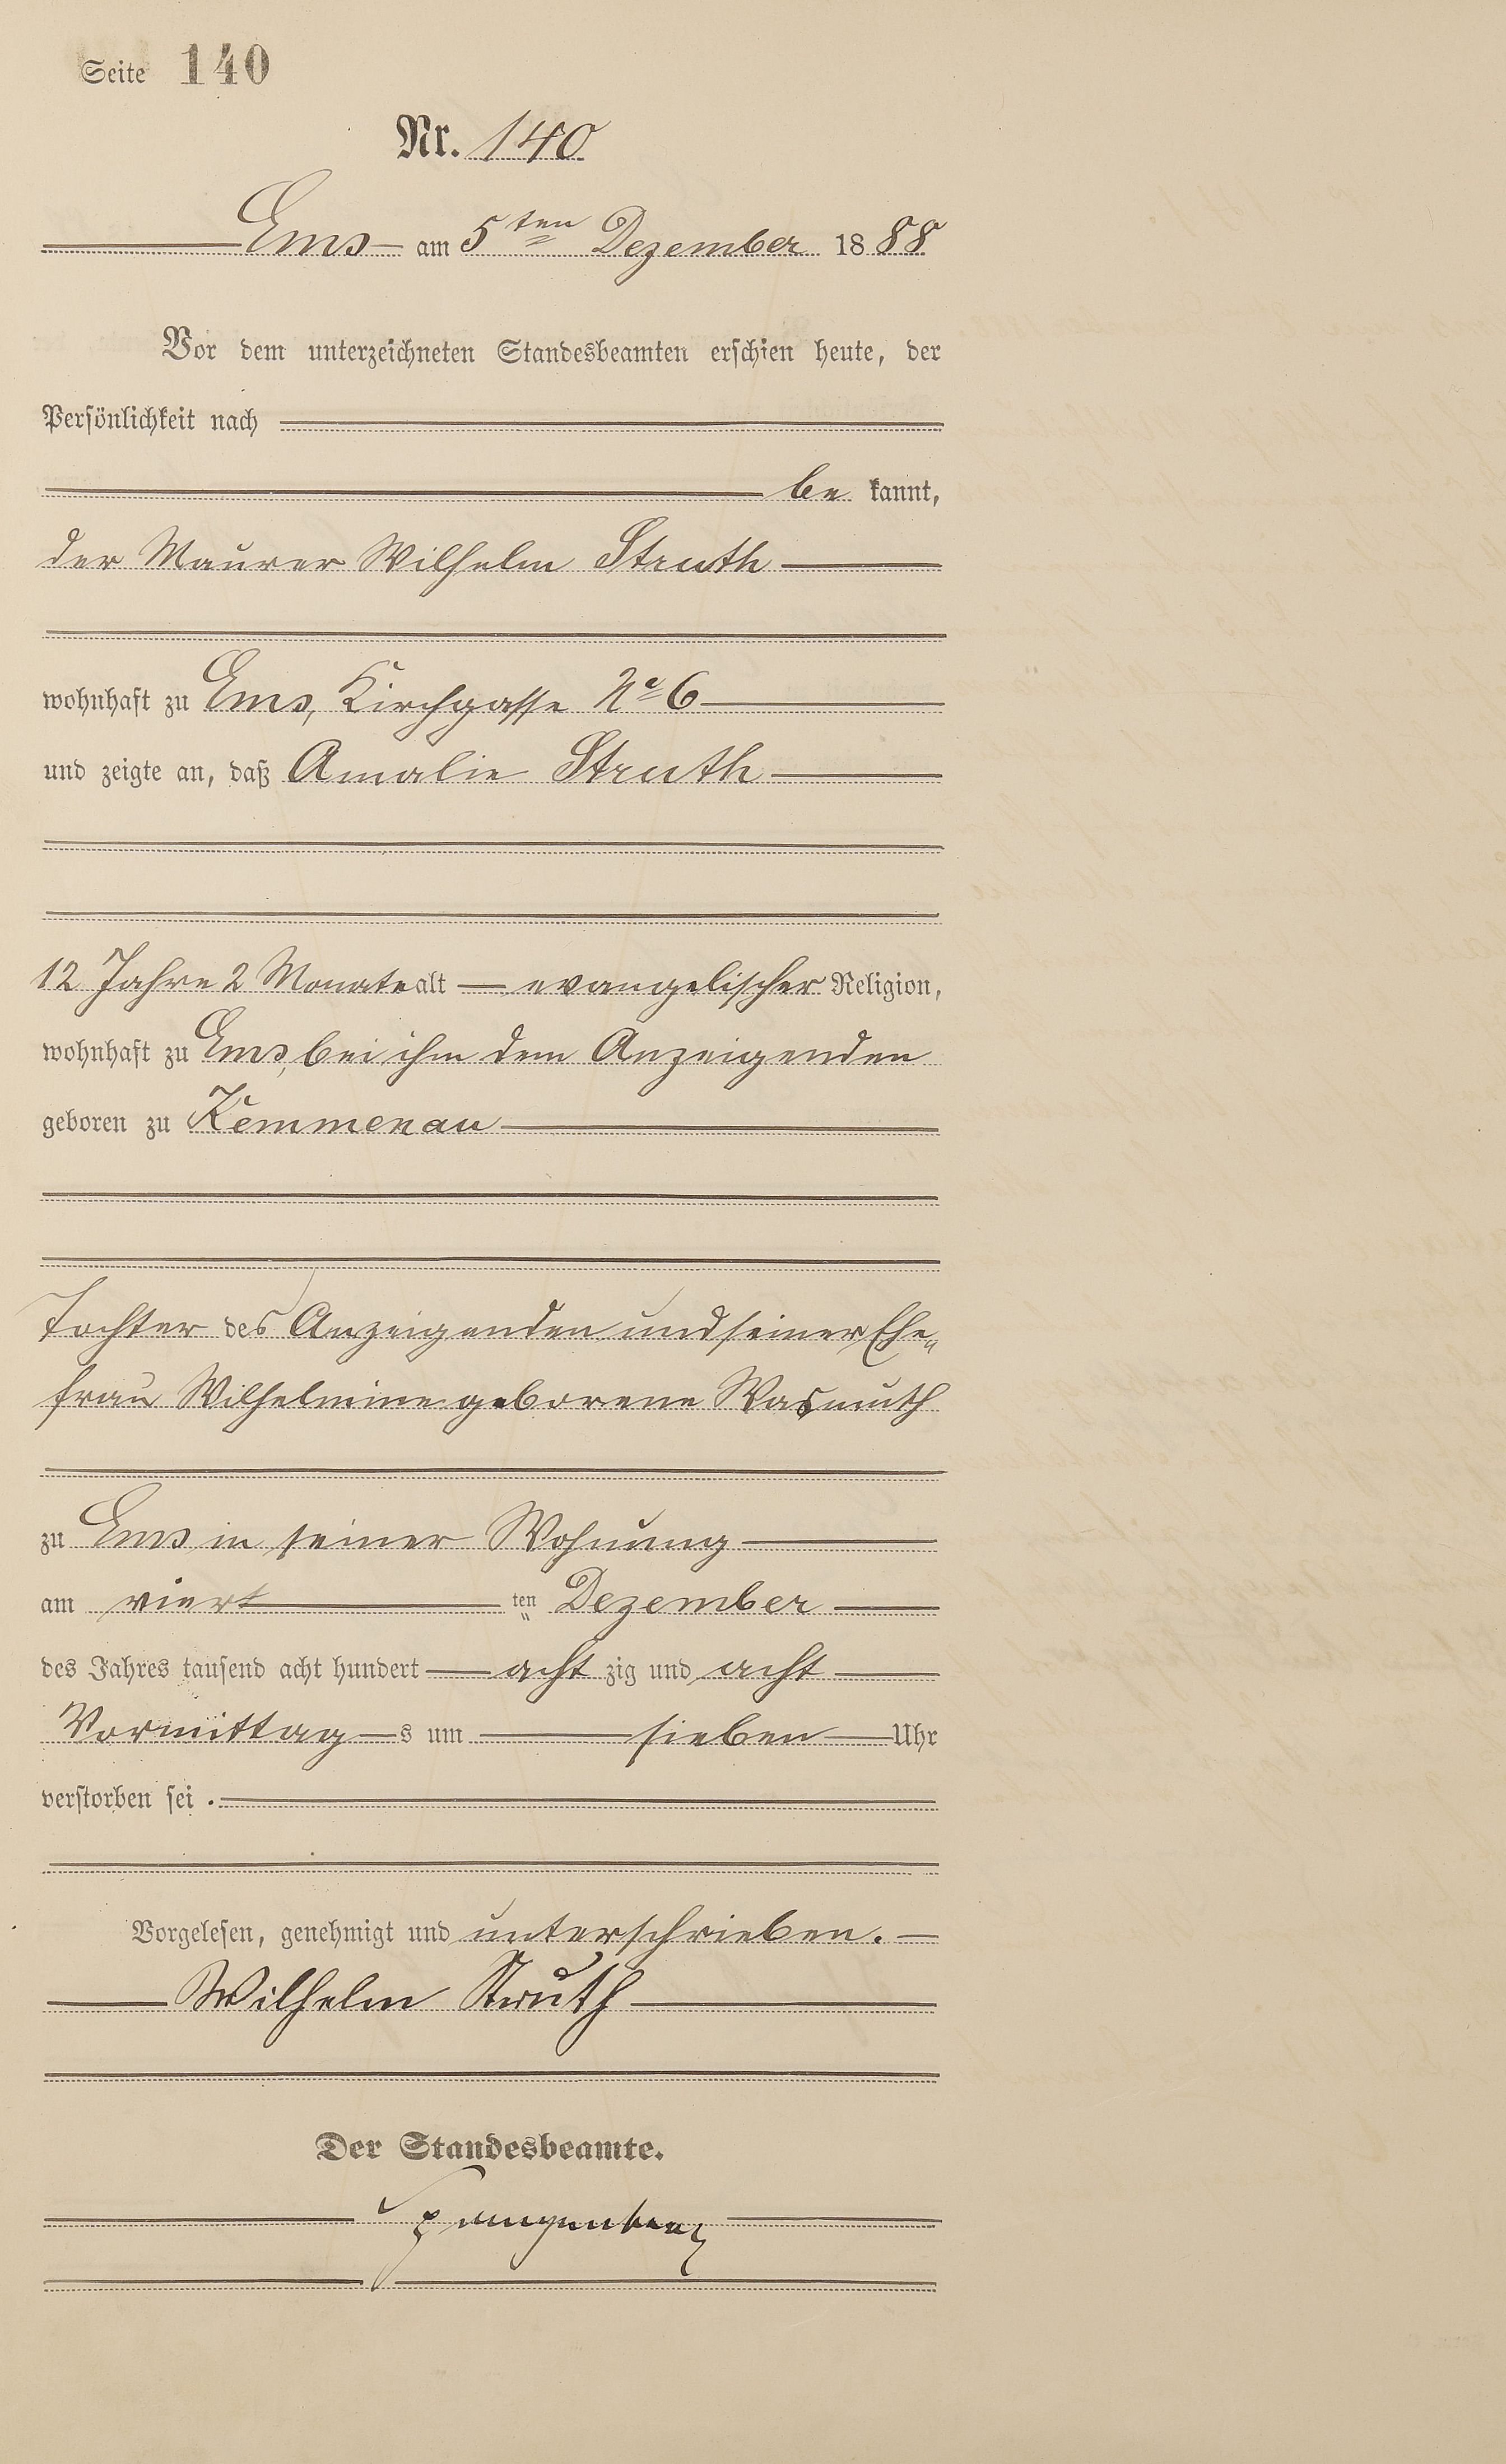 Seite 140
Nr. 140
Ems am 5ten Dezember 1888
Vor dem unterzeichneten Standesbeamten erschien heute, der
Persönlichkeit nach
be kannt,
der Maurer Wilhelm Struth
wohnhaft zu Ems, Kirchgasse No 6
und zeigte an, daß Amalie Struth
12 Jahre 2 Monate alt — evangelischer Religion,
wohnhaft zu Ems, bei ihm dem Anzeigenden
geboren zu Kemmenau
Tochter des Anzeigenden und seiner Ehe„
frau Wilhelmine geborene Wasmuth
zu Ems in seiner Wohnung
am viert ten Dezember
des Jahres tausend acht hundert acht zig und acht
Vormittag s um sieben Uhr
verstorben sei.
Vorgelesen, genehmigt und unterschrieben.
Wilhelm Struth
Der Standesbeamte.
Spangenberg